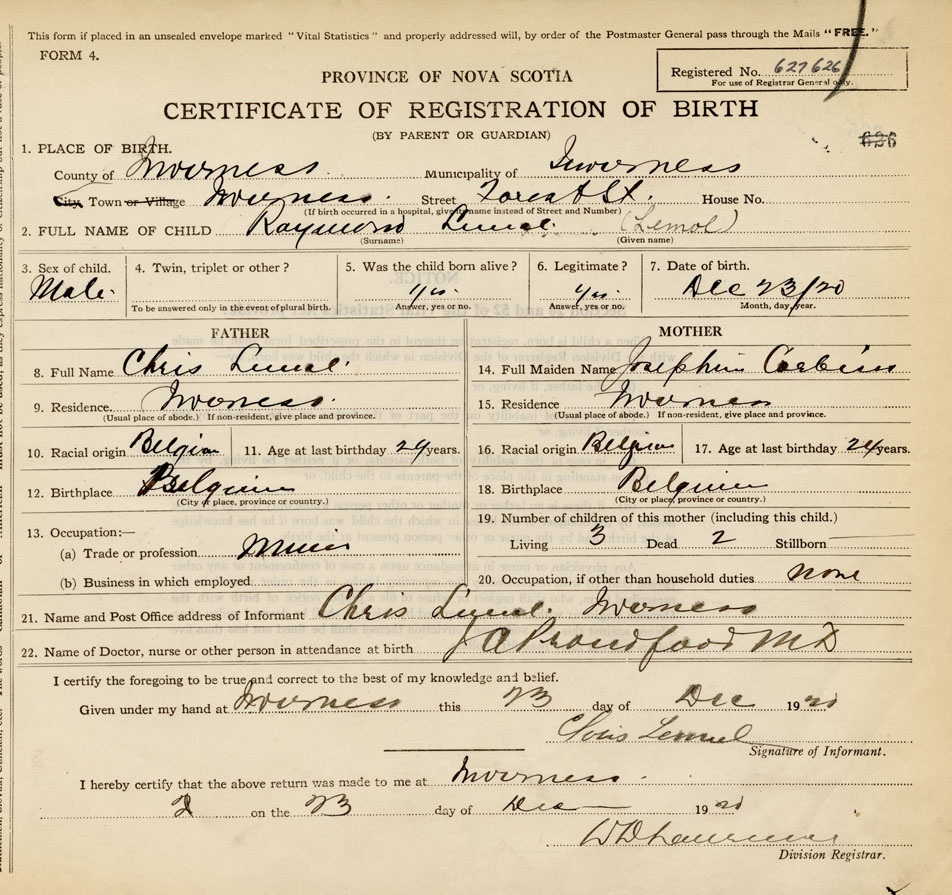 This form if placed in an unsealed envelope marked "Vital Statistics" and properly addressed will, by order of the Postmaster General pass through the Mails "FREE."
FORM 4.
PROVINCE OF NOVA SCOTIA
Registered No. 627626
For use of Registrar General only.
CERTIFICATE OF REGISTRATION OF BIRTH
(BY PARENT OR GUARDIAN)
626
1. PLACE OF BIRTH.
County of Inverness Municipality of Inverness
City, Town or Village Inverness. Street Forest St. House No.
(If birth occurred in a hospital, give its name instead of Street and Number)
2. FULL NAME OF CHILD Raymond (Lemol)
(Surname) (Given name)
3. Sex of child. 4. Twin, triplet or other? 5. Was the child born alive? 6. Legitimate? 7. Date of birth.
Male. yes. yes. Dec 23/20
To be answered only in the event of plural birth. Answer, yes or no. Answer, yes or no. Month, day, year.
FATHER MOTHER
8. Full Name Chris 14. Full Maiden Name Josephine
9. Residence. Inverness. 15. Residence Inverness
(Usual place of abode.) If non-resident, give place and province. (Usual place of abode.) If non-resident, give place and province.
10. Racial origin Belgian 11. Age at last birthday 24 years. 16. Racial origin Belgian 17. Age at last birthday 24 years.
12. Birthplace Belgium 18. Birthplace Belgium
(City or place, province or country.) (City or place, province or country.)
13. Occupation:— 19. Number of children of this mother (including this child.)
(a) Trade or profession Miner Living 3 Dead 2 Stillborn
(b) Business in which employed 20. Occupation, if other than household duties none
21. Name and Post Office address of Informant Chris Inverness
22. Name of Doctor, nurse or other person in attendance at birth J A Proudfood MD
I certify the foregoing to be true and correct to the best of my knowledge and belief.
Given under my hand at Inverness this 23 day of Dec 1920
Lemmel
Signature of Informant.
I hereby certify that the above return was made to me at Inverness.
on the 23 day of Dec 1920
Division Registrar.